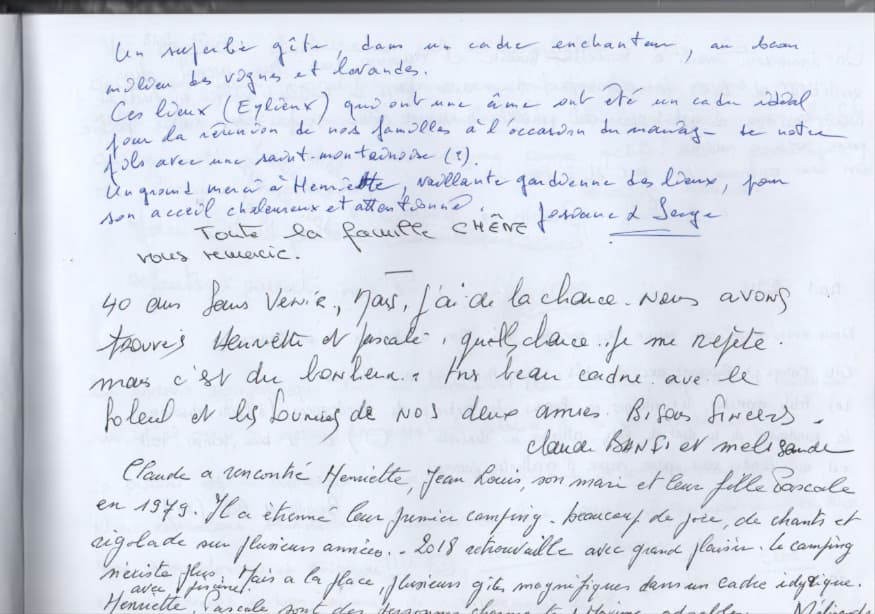 Un superbe gîte, dans un cadre enchanteur, au beau
milieu des vignes et lavandes.
Ces lieux (Eylieux) qui ont une âme ont été un cadre idéal
pour la réunion de nos familles à l'occasion du mariage de notre
fils avec une saint-montainoise (!).
Un grand merci à Henriette, vaillante gardienne des lieux, pour
son acceuil chaleureux et attentionné. Josiane & Serge
Toute la famille CHÊNE
vous remercie.
40 ans sans venir, mais, j'ai de la chance. Nous avons
trouvés Henriette et Pascale, quelle chance. Je me répète.
mais c'est du bonheur. Très beau cadre avec le
Soleil et les sourires de nos deux amies. Bisous Sincers
Claude et mélisande
Claude a rencontré Henriette, Jean Louis, son mari et leur fille Pascale
en 1979. Il a étrenné leur premier camping. beaucoup de joie, de chants et
rigolade sur plusieurs années. 2018 retrouvaille avec grand plaisir. Le camping
n'existe plus. Mais a la place, plusieurs gites magnifiques dans un cadre idylique.
avec piscine.
Henriette, Pascale sont des personnes